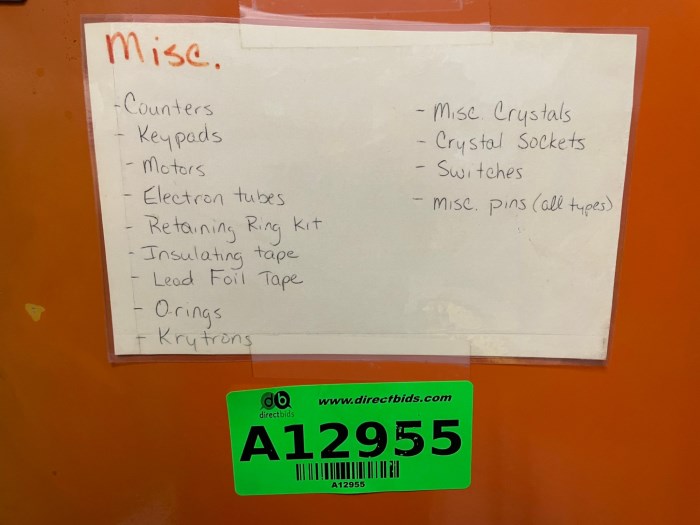 Misc.
- Counters
- Keypads
- Motors
- Electron tubes
- Retaining Ring Kit
- Insulating tape
- Lead Foil Tape
- O-rings
- Krytrons
- Misc. Crystals
- Crystal Sockets
- Switches
- misc. pins (all types)
db
directbids
www.directbids.com
A12955
A12955